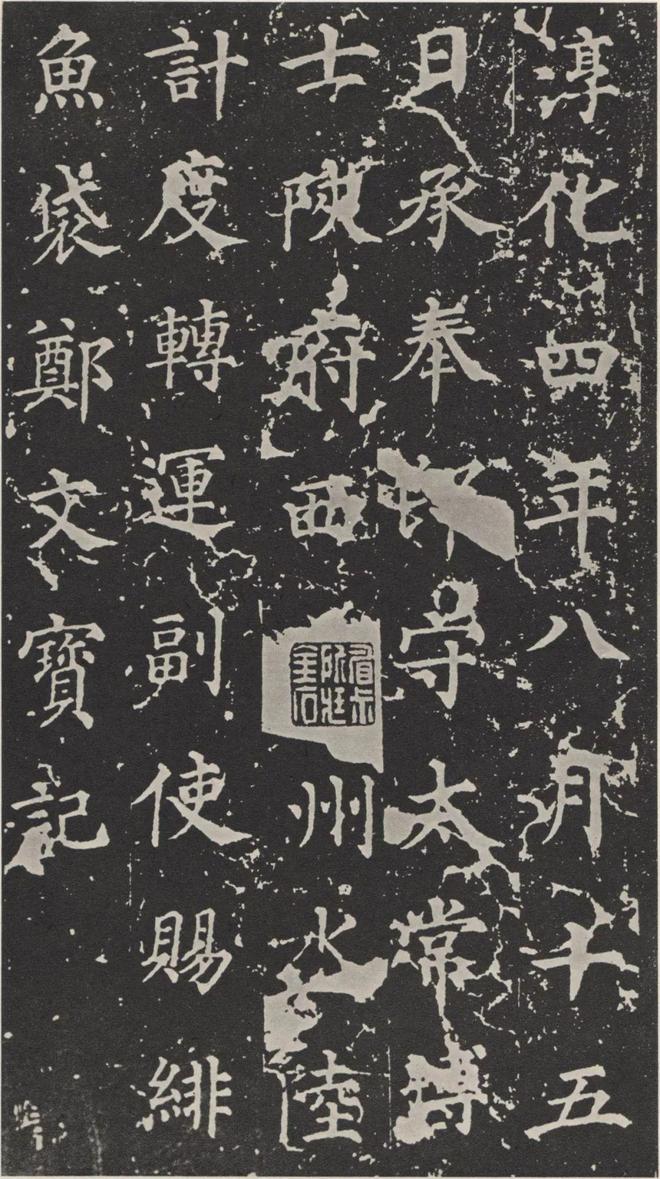 淳化四年八月十五
日承奉郎守太常博
士陝府西州水陸
計度轉運副使賜緋
魚袋鄭文寶記